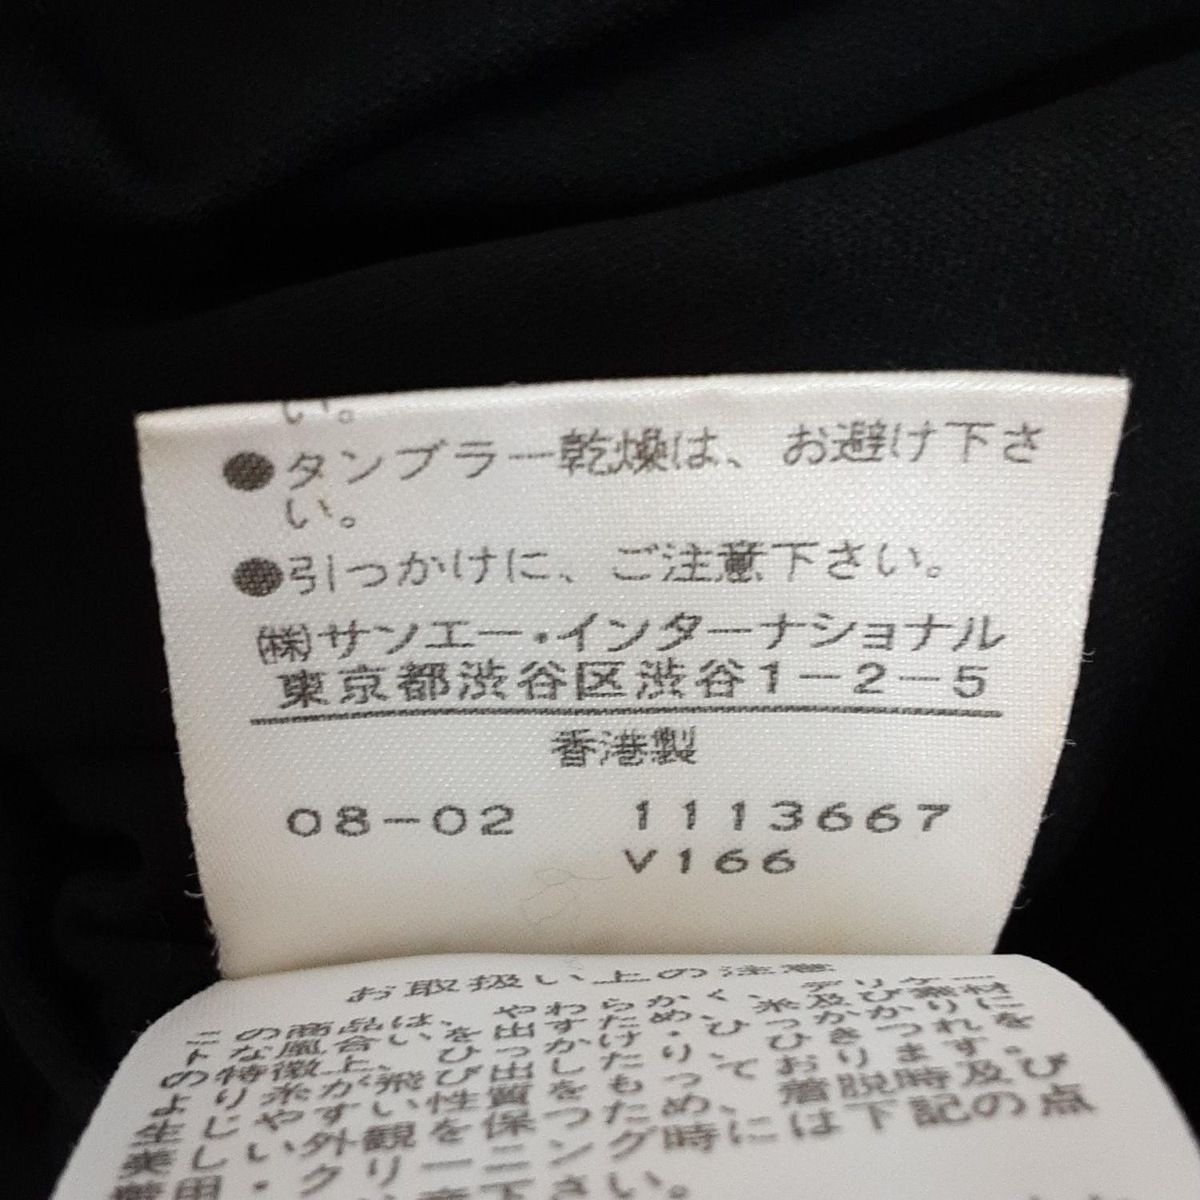 い。
●タンブラー乾燥は、お避け下さ
い。
●引っかけに、ご注意下さい。
㈱サンエー・インターナショナル
東京都渋谷区渋谷1-2-5
香港製
08-02 1113667
V166
お取扱い上の注意
この商品は、やわらかく、デリケー
トな風合いを出すため、糸及び素材
の特徴上、ひっかけ・ひっかかりに
より糸が飛び出したり、ひきつれを
生じやすい性質をもっております。
美しい外観を保つため、着脱時及び
グ時には下記の点